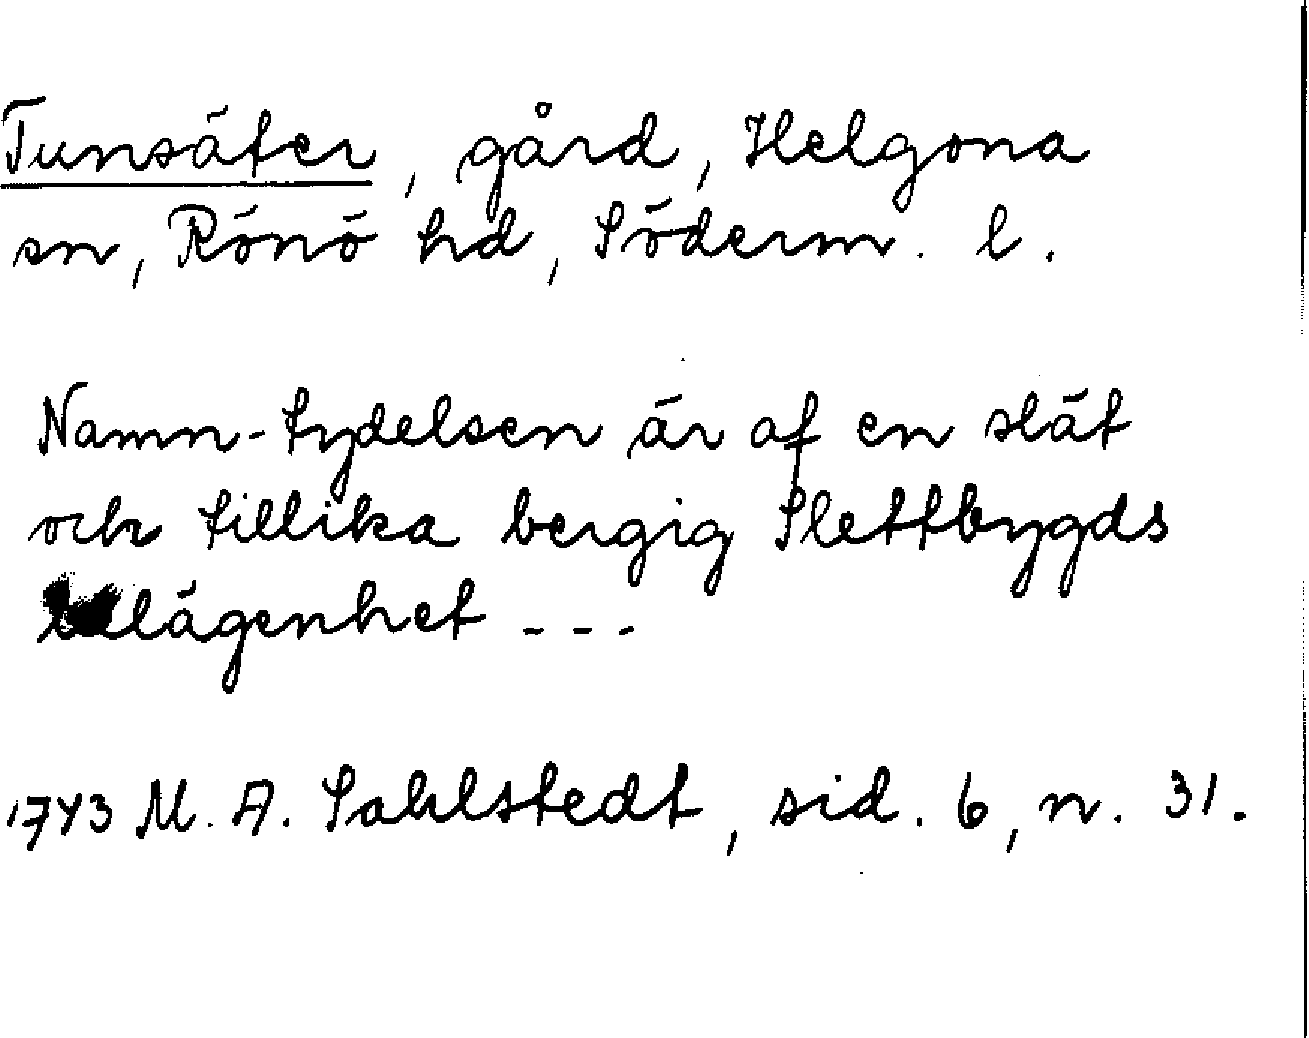 Tunsäter, gård, Helgona
sn, Rönö hd, Söderm. l.
Namn-tydelsen är af en slät
och tillika bergig Slettbygds
lägenhet ---
1743 M. A. Sahlstedt, sid. 6, n. 31.